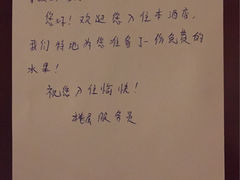 您好！欢迎您入住本酒店，
我们特地为您准备了一份免费的
水果！
祝您入住愉快！
楼层服务员